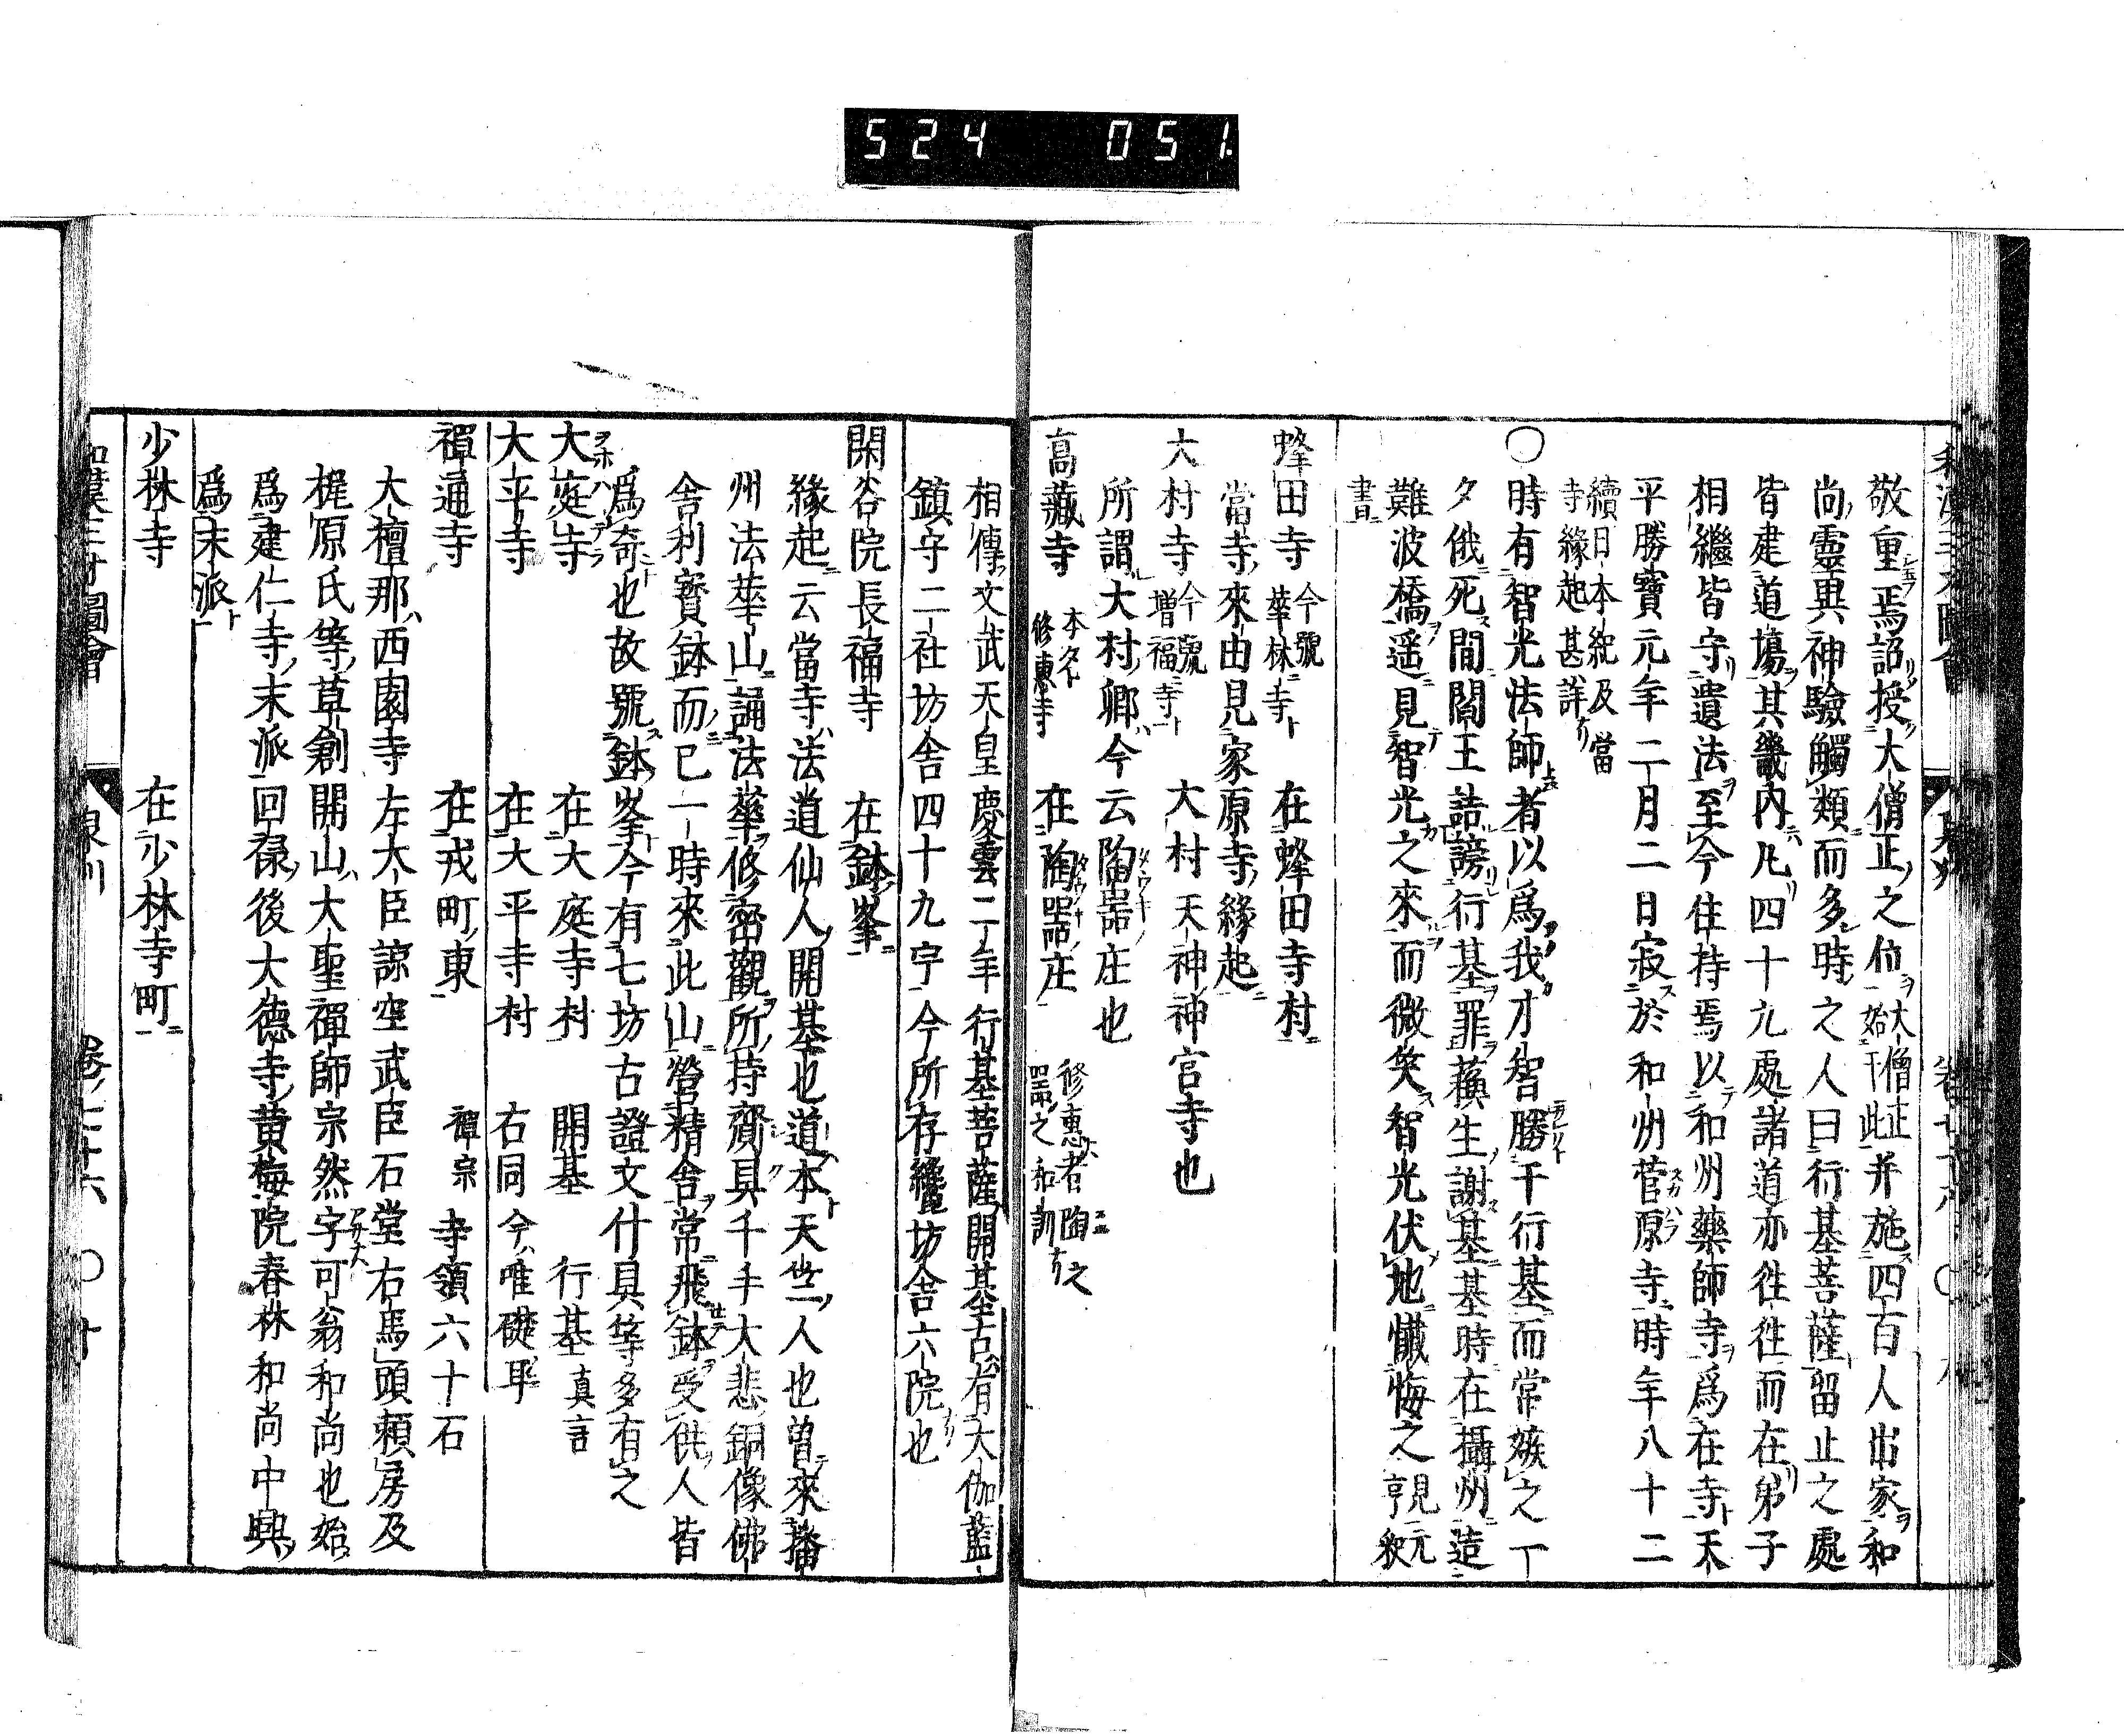 524 051
敬重焉詔授大僧正之位大僧正始于此并施四百人出家和
尚靈異神驗觸類而多時之人曰行基菩薩留止之處
皆建道場其畿內凡四十九處諸道亦往往而在弟子
相繼皆守遺法至今住持焉以和州藥師寺爲在寺天
平勝寶元年二月二日寂於和州菅原寺時年八十二
續日本紀及當
寺緣起甚詳
〇時有智光法師者以爲我才智勝于行基而常嫉之一
夕俄死間閻王誥謗行基罪蘓生謝基基時在攝州造
難波橋遥見智光之來而微笑智光伏地懺悔之見元亨釈
書
蜂田寺 今號華林寺 在蜂田寺村
當寺來由見家原寺緣起
大村寺 今號增福寺 大村天神神宮寺也
所謂大村郷今云陶器庄也
高藏寺 本名修惠寺 在陶器庄 修惠者陶器之和訓
相傳文武天皇慶雲二年行基菩薩開基古有大伽藍
鎮守二社坊舍四十九宇今所存纔坊舍六院也
閑谷院長福寺 在鉢峯
緣起云當寺法道仙人開基也道本天竺人也曽來播
州法華山誦法華修密觀所持齎具千手大悲銅像佛
舍利寳鉢而已一時來此山營精舍常飛鉢受供人皆
爲奇也故號鉢峯今有七坊古證文什具等多有之
大庭寺 在大庭寺村 開基 行基 真言
大平寺 在大平寺村 右同今唯礎耳
禪通寺 在戎町東 禪宗 寺領六十石
大檀那西園寺左大臣諒空武臣石堂右馬頭頼房及
梶原氏等草創開山大聖禪師宗然字可翁和尚也始
爲建仁寺末派回禄後大德寺黄梅院春林和尚中興
爲末派
少林寺 在少林寺町
和漢三才圖會 泉州 卷七十六 〇十